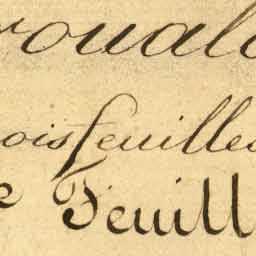 rouale
ois feuilles
e Feuill